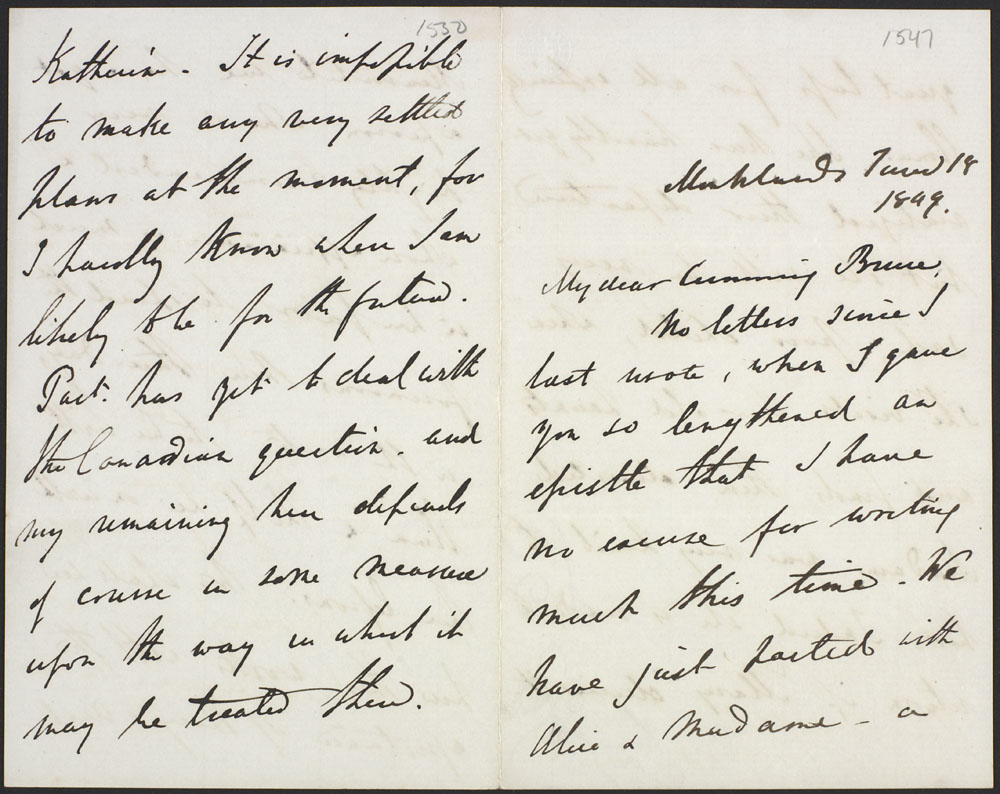 1530
Katherine. It is impossible
to make any very settled
plans at the moment, for
I hardly know where I am
likely to be for the future.
Parlt. has yet to deal with
the Canadian question. and
my remaining here depends
of course in some measure
upon the way in which it
may be treated there.
1547
Monklands June 18
1849.
My dear Cumming Bruce,
No letters since I
last wrote, when I gave
you so lengthened an
epistle that I have
no excuse for writing
much this time. We
have just parted with
Alice & Madame - a